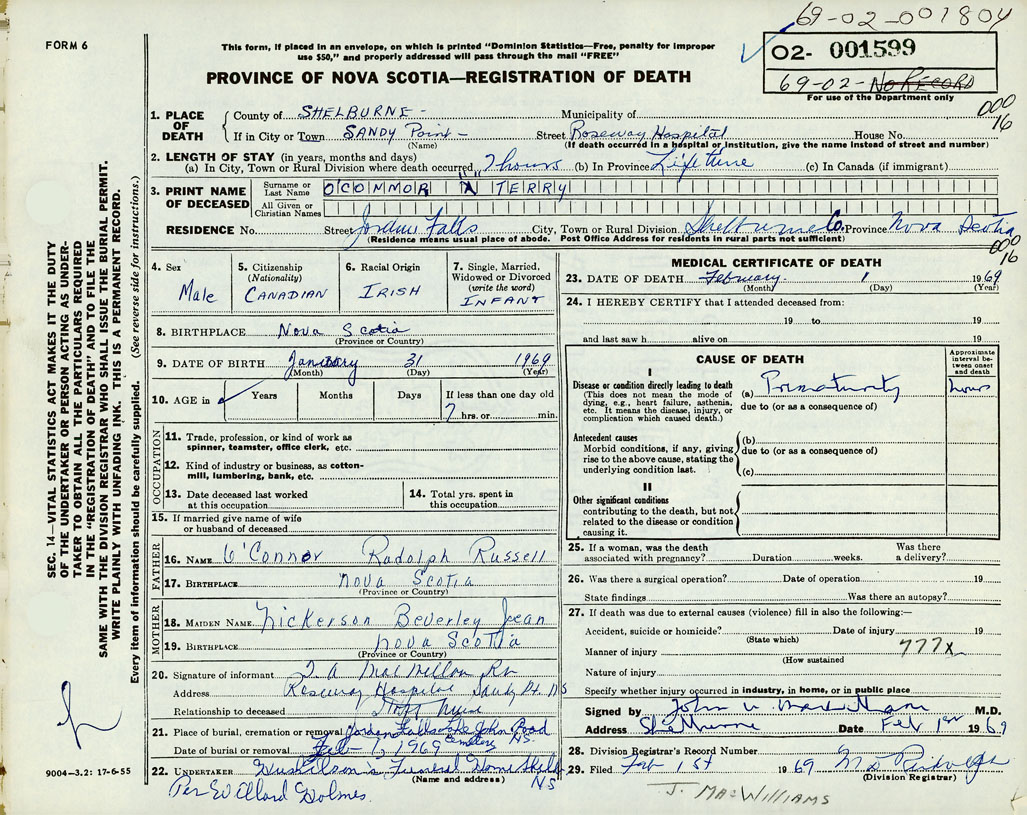 69-02-001804
FORM 6
This form, if placed in an envelope, on which is printed "Dominion Statistics—Free, penalty for improper
use $50," and properly addressed will pass through the mail "FREE"
02- 001599
69-02-No RECORD
For use of the Department only
PROVINCE OF NOVA SCOTIA—REGISTRATION OF DEATH
000
16
1. PLACE OF DEATH
County of SHELBURNE - Municipality of
If in City or Town SANDY Point - Street Roseway Hospital House No.
(Name) (If death occurred in a hospital or institution, give the name instead of street and number)
2. LENGTH OF STAY (in years, months and days)
(a) In City, Town or Rural Division where death occurred 7 hours (b) In Province Lifetime (c) In Canada (if immigrant)
3. PRINT NAME OF DECEASED
Surname or Last Name O'CONNOR TERRY
All Given or Christian Names
RESIDENCE No. Street Jordan Falls City, Town or Rural Division Shelburne Co. Province Nova Scotia
(Residence means usual place of abode. Post Office Address for residents in rural parts not sufficient)
000
16
4. Sex
Male
5. Citizenship
(Nationality)
CANADIAN
6. Racial Origin
IRISH
7. Single, Married,
Widowed or Divorced
(write the word)
INFANT
8. BIRTHPLACE Nova Scotia
(Province or Country)
9. DATE OF BIRTH January 31 1969
(Month) (Day) (Year)
10. AGE in
Years
Months
Days
If less than one day old
7 hrs. or min.
OCCUPATION
11. Trade, profession, or kind of work as
spinner, teamster, office clerk, etc.
12. Kind of industry or business, as cotton-
mill, lumbering, bank, etc.
13. Date deceased last worked
at this occupation
14. Total yrs. spent in
this occupation
15. If married give name of wife
or husband of deceased
FATHER
16. NAME O'Connor Rudolph Russell
17. BIRTHPLACE Nova Scotia
(Province or Country)
MOTHER
18. MAIDEN NAME Nickerson Beverley Jean
19. BIRTHPLACE Nova Scotia
(Province or Country)
20. Signature of informant
Address Roseway Hospital Sandy Pt. NS
Relationship to deceased Staff Nurse
21. Place of burial, cremation or removal Jordan Falls John Road
Cemetery NS
Date of burial or removal Feb 1, 1969
22. UNDERTAKER Funeral Home
(Name and address)
NS
Per Willard Holmes.
MEDICAL CERTIFICATE OF DEATH
23. DATE OF DEATH February 1 1969
(Month) (Day) (Year)
24. I HEREBY CERTIFY that I attended deceased from:
19 to 19
and last saw h alive on 19
CAUSE OF DEATH
Approximate
interval be-
tween onset
and death
I
Disease or condition directly leading to death
(This does not mean the mode of
dying, e.g., heart failure, asthenia,
etc. It means the disease, injury, or
complication which caused death.)
(a) Prematurity hours
due to (or as a consequence of)
Antecedent causes
Morbid conditions, if any, giving
rise to the above cause, stating the
underlying condition last.
(b)
due to (or as a consequence of)
(c)
II
Other significant conditions
contributing to the death, but not
related to the disease or condition
causing it.
25. If a woman, was the death
associated with pregnancy? Duration weeks. Was there
a delivery?
26. Was there a surgical operation? Date of operation 19
State findings Was there an autopsy?
27. If death was due to external causes (violence) fill in also the following:—
Accident, suicide or homicide? Date of injury 19
(State which)
Manner of injury 777x
(How sustained
Nature of injury
Specify whether injury occurred in industry, in home, or in public place
Signed by John M.D.
Address Shelburne Date Feb 1st 1969
28. Division Registrar's Record Number
29. Filed Feb 1st 1969
(Division Registrar)
J. MacWILLIAMS
SEC. 14—VITAL STATISTICS ACT MAKES IT THE DUTY
OF THE UNDERTAKER OR PERSON ACTING AS UNDER-
TAKER TO OBTAIN ALL THE PARTICULARS REQUIRED
IN THE "REGISTRATION OF DEATH" AND TO FILE THE
SAME WITH THE DIVISION REGISTRAR WHO SHALL ISSUE THE BURIAL PERMIT.
WRITE PLAINLY WITH UNFADING INK. THIS IS A PERMANENT RECORD.
Every item of information should be carefully supplied. (See reverse side for instructions.)
9004—3.2: 17-6-55